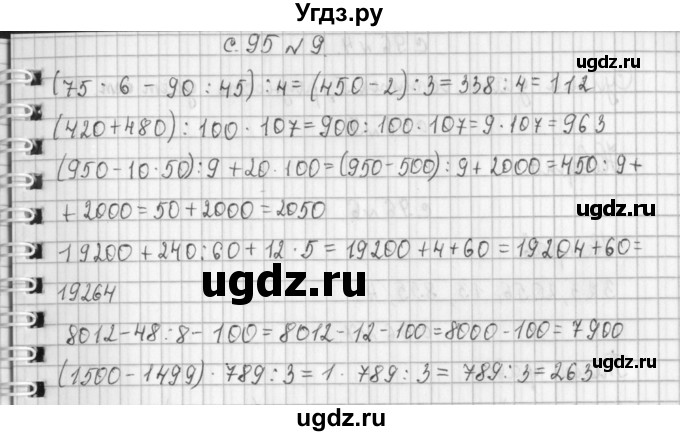 Угдз.ру
с. 95 № 9.
(75 : 6 - 90 : 45) : 4 = (450 - 2) : 3 = 338 : 4 = 112
(420 + 480) : 100 · 107 = 900 : 100 · 107 = 9 · 107 = 963
(950 - 10 · 50) : 9 + 20 · 100 = (950 - 500) : 9 + 2000 = 450 : 9 +
+ 2000 = 50 + 2000 = 2050
19200 + 240 : 60 + 12 · 5 = 19200 + 4 + 60 = 19204 + 60 =
19264
8012 - 48 : 8 - 100 = 8012 - 12 - 100 = 8000 - 100 = 7900
(1500 - 1499) · 789 : 3 = 1 · 789 : 3 = 789 : 3 = 263
ugdz.ru
ugdz.ru
ugdz.ru
ugdz.ru
ugdz.ru
ugdz.ru
ugdz.ru